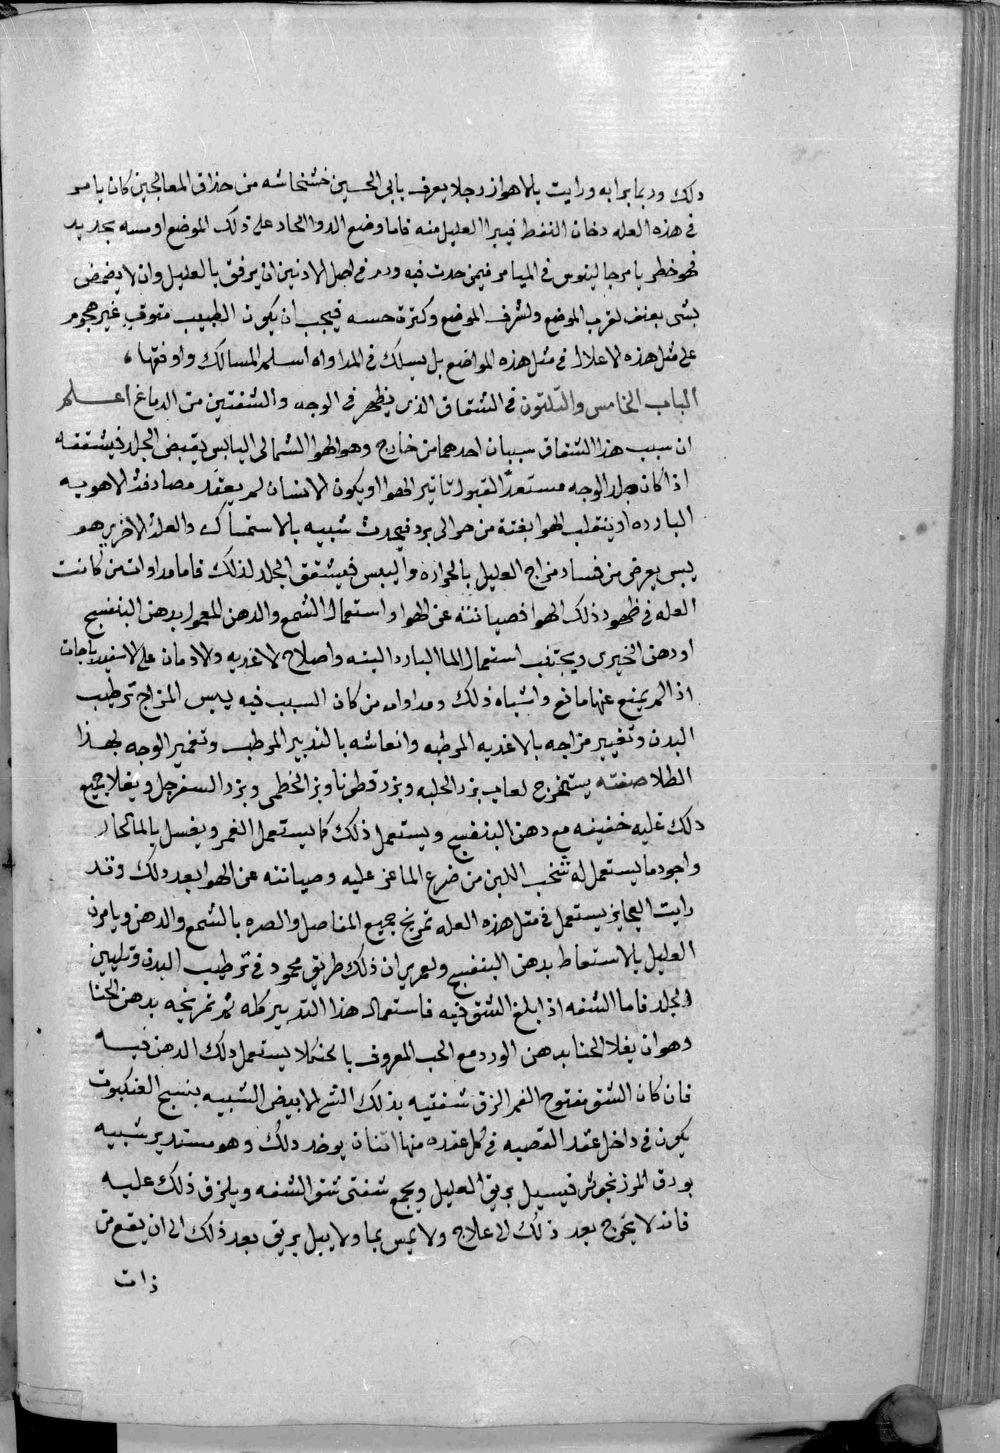 ذلك وربما برا به ورايت بالاهواز رجلا يعرف بابى الحسين خشنخاشه من حذاق المعالجين كان يامر
فى هذه العله دخان النفط فيبرا العليل منه فاما وضع الدوا الحاد على ذلك الموضع او مسه بحديد
فهو خطر يامر جالينوس فى الميامر فيمن حدث فيه ورم فى اصل الاذنين ان يرفق بالعليل وان لا يغمض
بشى بعنف لقرب الموضع ولشرف الموضع وكثرة حسه فيجب ان يكون الطبيب متوقب غير هجوم
على مثل هذه الاعلال فى مثل هذه المواضع بل يسلك فى المداواه اسلم المسالك واوفقها
الباب الخامس والثلثون فى الشقاق الذى يظهر فى الوجه والشفتين من الدماغ اعلم
ان سبب هذا الشقاق سببان احدهما من خارج وهو الهوا الشمالى اليابس يقبض الجلد فيشققه
اذا كان جلد الوجه مستعدا لقبول تاثير الهوا او يكون الانسان لم يعتد مصادفة الاهويه
البارده او ينقلب الهوا بغتة من حر الى برد فيحدث شبيه بالاستمساك والعلة الاخرى هو
يبس يعرض من فساد مزاج العليل بالحراره واليبس فيشقق الجلد لذلك فاما مداواة من كانت
العله فى ظهور ذلك الهوا فصيانته عن الهوا واستعمال الشمع والدهن المعمول بدهن البنفسج
او دهن الخيرى ويجتنب استعمال الما البارد البته واصلاح الاغذيه والادمان على الاسفيدباجات
اذا لم يمنع عنها مانع واشباه ذلك ومداواه من كان السبب فيه يبس المزاج ترطيب
البدن وتغيير مزاجه بالاغذيه المرطبه وانعاشه بالتدبير المرطب وتغمير الوجه بهذا
الطلا صفته يستخرج لعاب بزر الحلبه وبزر قطونا وبزر الخطمى وبزر السفرجل ويغلا جميع
ذلك غليه خفيفه مع دهن البنفسج ويستعمل ذلك كما يستعمل الغمر ويغسل بالما الحار
واجود ما يستعمل له شخب اللبن من ضرع الماعز عليه وصيانته عن الهوا بعد ذلك وقد
رايت العجايز يستعمل فى مثل هذه العله تمريخ جميع المفاصل والصره بالشمع والدهن ويامرن
العليل بالاستعاط بدهن البنفسج ولعمرى ان ذلك طريق محمود فى ترطيب البدن وتليين
الجلد فاما الشفه اذا بلغ الشق فيه فاستعمال هذا التدبير كله ثم تمريخه بدهن الحنا
وهو ان يغلا الحنا بدهن الورد مع الحب المعروف بالحنكلا يستعمل ذلك الدهن فيه
فان كان الشق مفتوح الفم الزق شفتيه بذلك الشى الابيض الشبيه بنسج العنكبوت
يكون فى داخل عقد القصبه فى كل عقده منها اثنان يوخذ ذلك وهو مستدير شبيه
بورق المرزنجوش فيسيل بريق العليل ويجمع شفتى شق الشفه ويلزق ذلك عليه
فانه لا يحوج بعد ذلك الى علاج ولا يمس بما ولا يبل بريق بعد ذلك الى ان يقع من
ذات